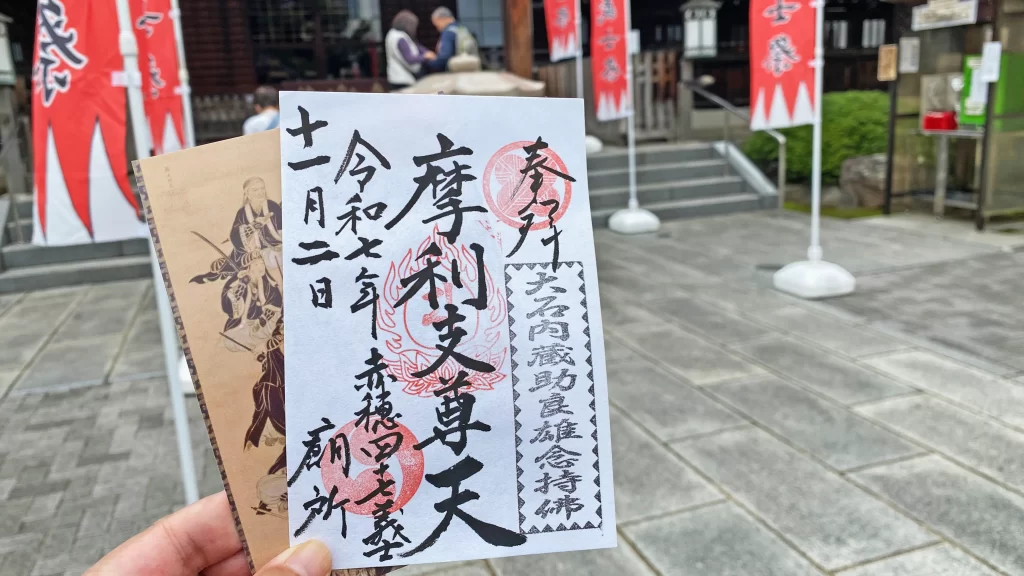 奉拝
大石内蔵助良雄念持佛
摩利支尊天
赤穂四十七義士
廟所
令和七年
十一月二日